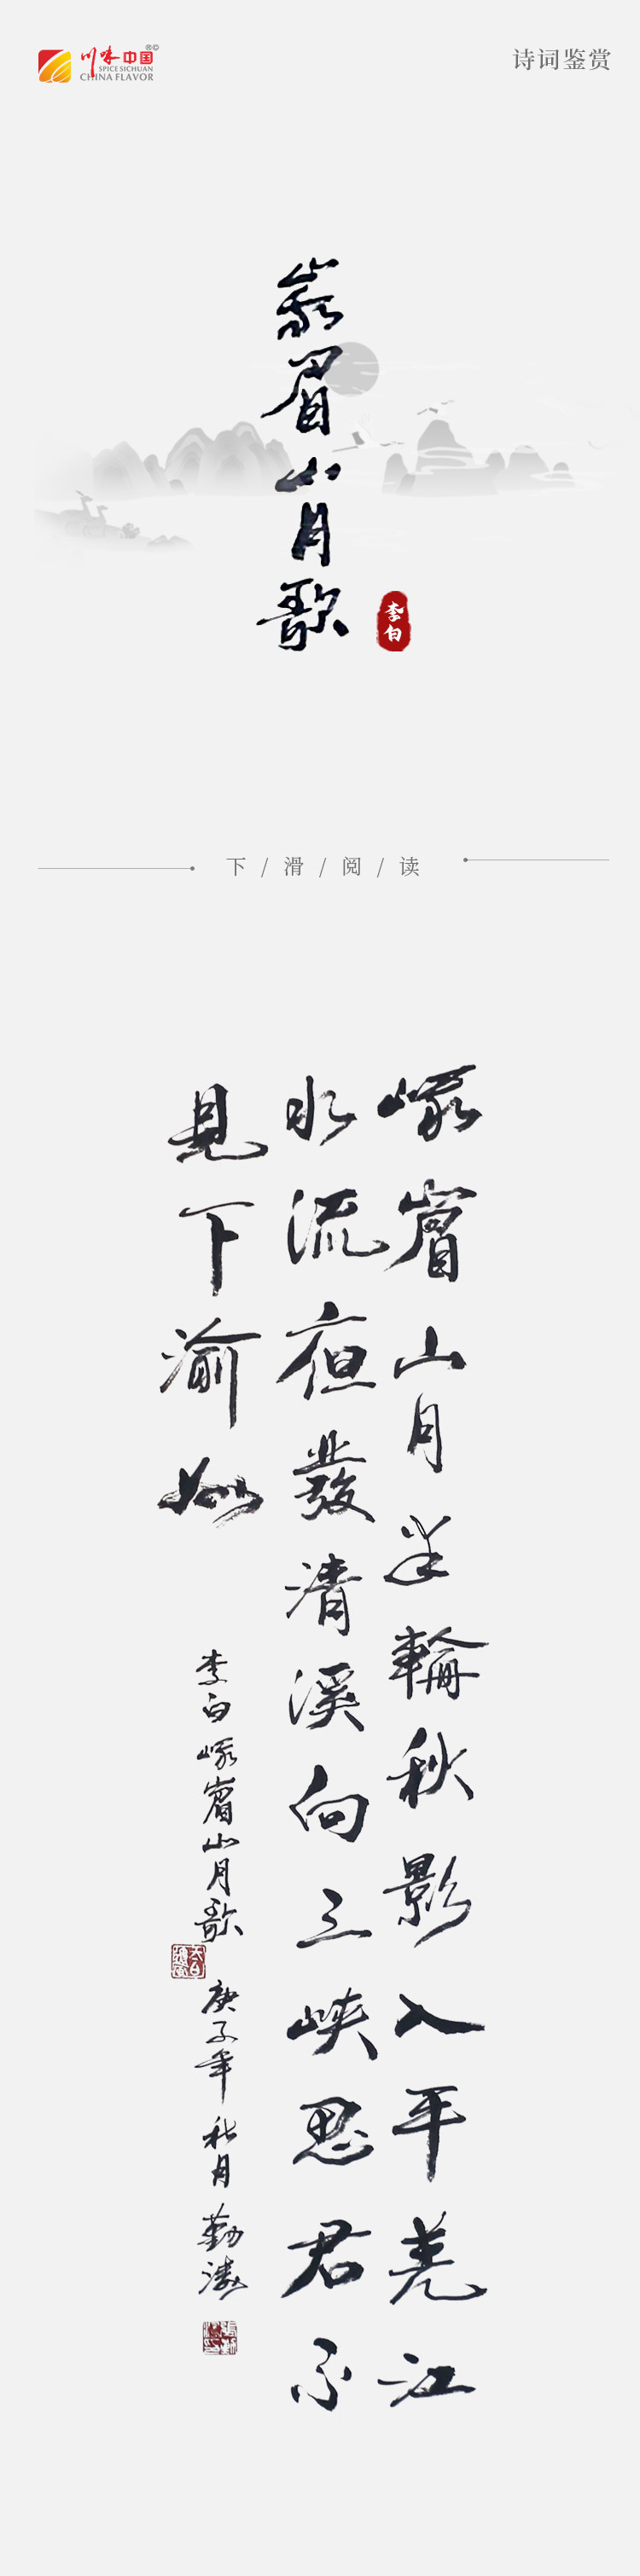 川味中国®©
SPICE SICHUAN
CHINA FLAVOR
诗词鉴赏
峩眉山月歌
李白
下 / 滑 / 阅 / 读
峨嵋山月半輪秋影入平羌江
水流夜發清溪向三峡思君不
見下渝州
李白峨嵋山月歌 庚子年秋月 勤